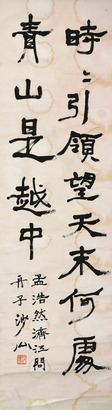 時〻引領望天末何處
青山是越中
孟浩然濟江問
舟子沙山